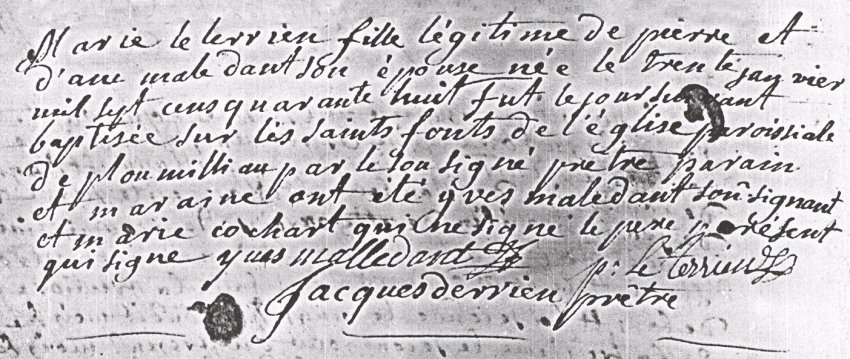 Marie le terrien fille légitime de pierre et
d'anne maledant son épouse née le trente janvier
mil sept cens quarante huit fut le jour suivant
baptisée sur les saints fonts de l'église paroissiale
de ploumilliau par le sousigné prêtre parain
et maraine ont été yves maledant sousignant
et marie cochart qui ne signe le pere présent
qui signe yves malledant p: le terrien
Jacques derrien prêtre